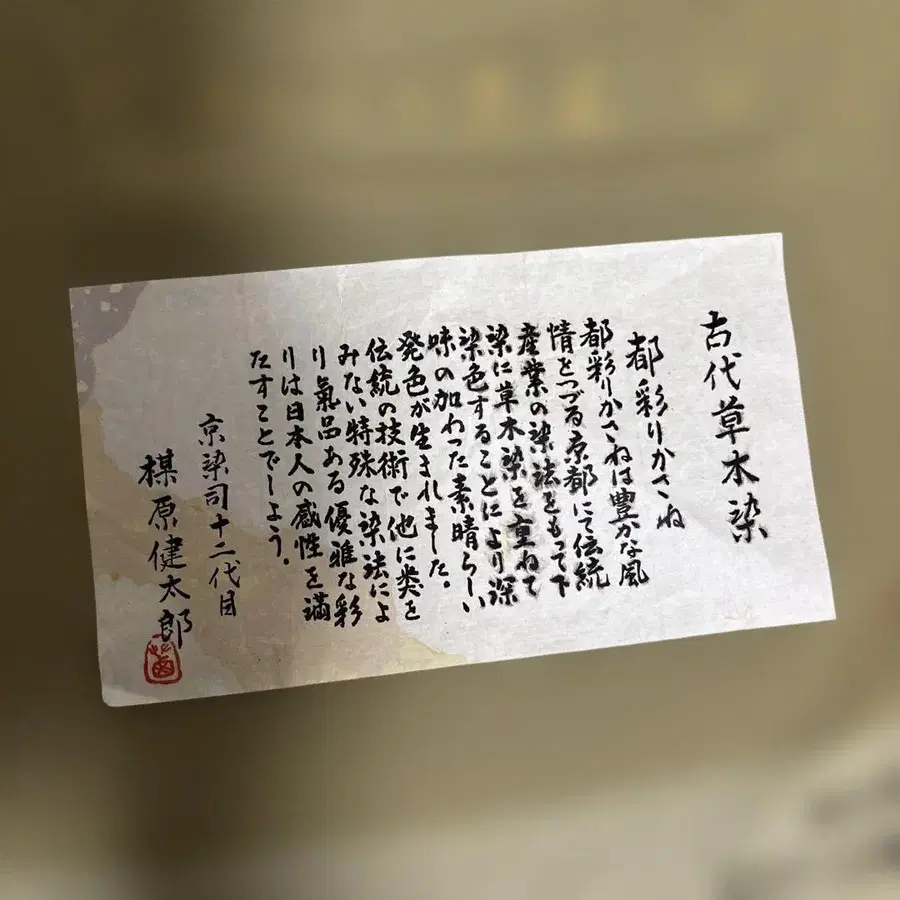 古代草木染
都彩りかさね
都彩りかさねは豊かな風
情をつづる京都にて伝統
産業の染法をもって下
染に草木染を重ねて
染色することにより深
味の加わった素晴らしい
発色が生まれました。
伝統の技術で他に類を
みない特殊な染法によ
り氣品ある優雅な彩
りは日本人の感性を満
たすことでしょう。
京染司十二代目
楳原健太郎